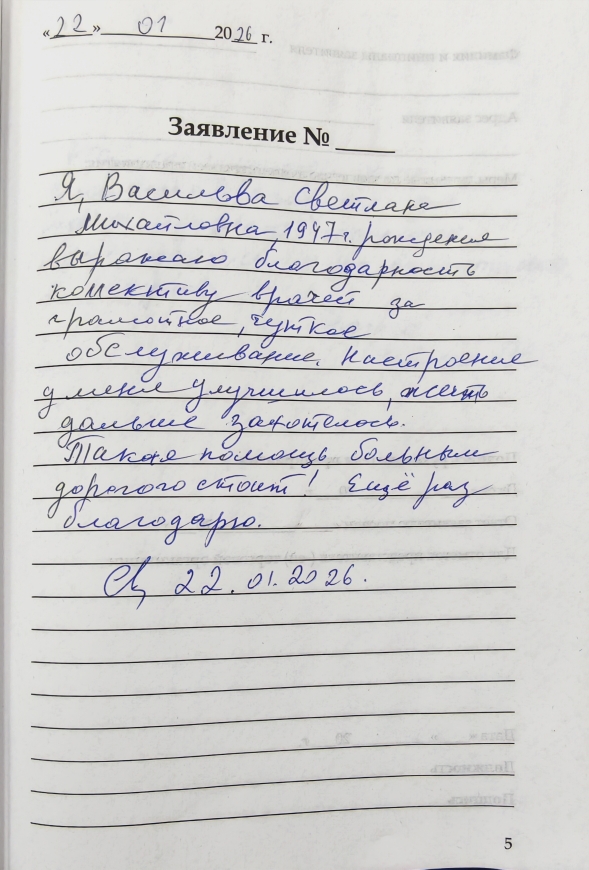 «22» 01 2026 г.
Заявление № ____
Я, Васильова Светлана
Михайловна, 1947 г. рождения
выражаю благодарность
колективу врачей за
грамотное, чуткое
обслуживание. Настроение
у меня улучшилось, жить
дальше захотелось.
Такая помощь больным
дорогого стоит! Ещё раз
благодарю.
22.01.2026.
5